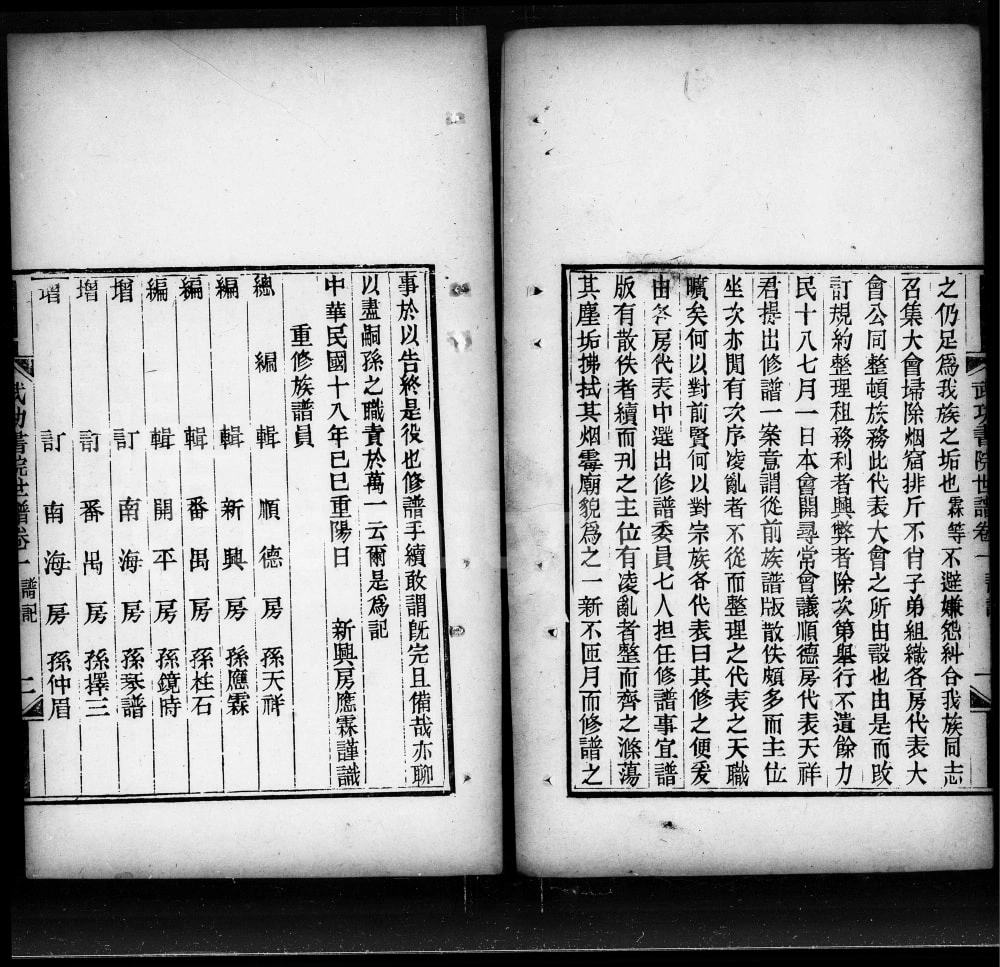 武功書院世譜卷一
之仍足爲我族之垢也霖等不避嫌怨糾合我族同志
召集大會埽除烟窟排斥不肖子弟組織各房代表大
會公同整頓族務此代表大會之所由設也由是而改
訂規約整理租務利者興弊者除次第舉行不遺餘力
民十八七月一日本會開尋常會議順德房代表天祥
君提出修譜一案意謂從前族譜版散佚頗多而主位
坐次亦閒有次序凌亂者不從而整理之代表之天職
曠矣何以對前賢何以對宗族各代表曰其修之便爰
由各房代表中選出修譜委員七人担任修譜事宜譜
版有散佚者續而刊之主位有凌亂者整而齊之滌蕩
其塵垢拂拭其烟霉廟貌爲之一新不匝月而修譜之
事於以告終是役也修譜手續敢謂既完且備哉亦聊
以盡嗣孫之職責於萬一云爾是爲記
中華民國十八年己巳重陽日 新興房應霖謹識
重修族譜員
總編輯順德房孫天祥
編輯新興房孫應霖
編輯番禺房孫柱石
編輯開平房孫鏡時
增訂南海房孫琴譜
增訂番禺房孫擇三
增訂南海房孫仲眉
武功書院世譜卷一 譜記 二